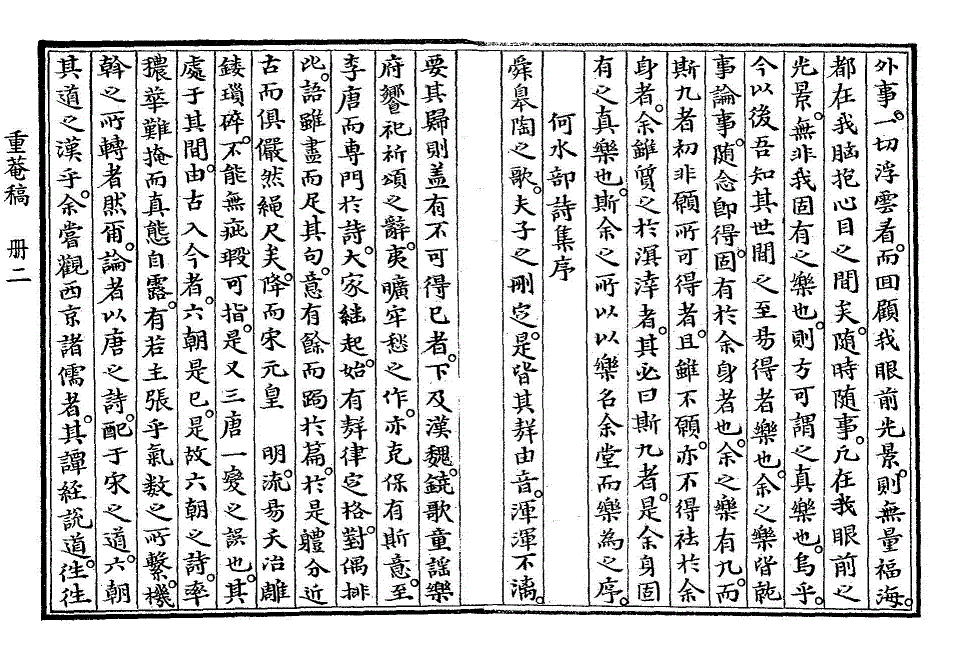 外事。一切浮雲看。而回顧我眼前光景。則無量福海。
都在我脑抱心目之間矣。隨時隨事。凡在我眼前之
光景。無非我固有之樂也。則方可謂之真樂也。烏乎
今以後吾知其世間之至易得者樂也。余之樂皆就
事論事。隨念卽得。固有於余身者也。余之樂有九而
斯九者初非願所可得者。且雖不願。亦不得祛於余
身者。余雖質之於溟涬者。其必曰斯九者。是余身固
有之真樂也。斯余之所以以樂名余堂而樂為之序。
何水部詩集序
舜皐陶之歌。夫子之刪定。是皆其群由音。渾渾不漓。
要其歸則盖有不可得已者。下及漢魏。鐃歌童謡樂
府饗祀祈頌之辭。夷曠牢愁之作。亦克保有斯意。至
李唐而專門於詩。大家継起。始有群律定格。對偶排
比。語雖盡而足其句。意有餘而跼於篇。於是軆分近
古而俱儼然繩尺矣。降而宋元皇 明。流易夭冶雕
鏤瑣碎。不能無疵瑕可指。是又三唐一變之誤也。其
處于其間。由古入今者。六朝是已。是故六朝之詩。率
穠華難掩而真態自露。有若主張乎氣数之所繫。機
斡之所轉者然爾。論者以唐之詩。配于宋之道。六朝
其道之漢乎。余嘗觀西京諸儒者。其譚経説道。往往
重菴稿 册二